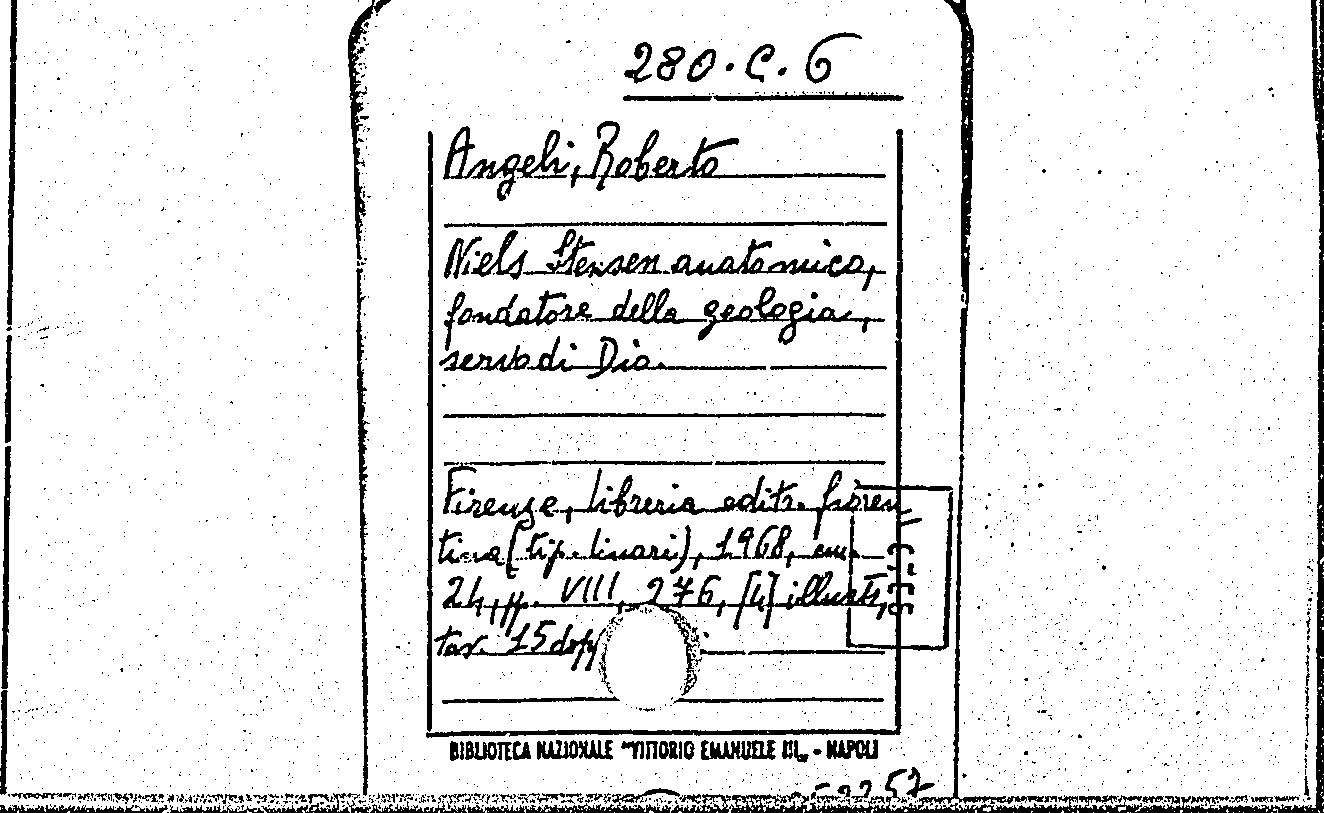 280.C.6
Angeli, Roberto
Niels Stensen anatomico,
fondatore della geologia,
servo di Dio.
Firenze, libreria editr. fioren
tina (tip. linari), 1968, cm.
24, pp. VIII, 276, [4] illustr,
tav. 15
BIBLIOTECA NAZIONALE "VITTORIO EMANUELE III„ - NAPOLI